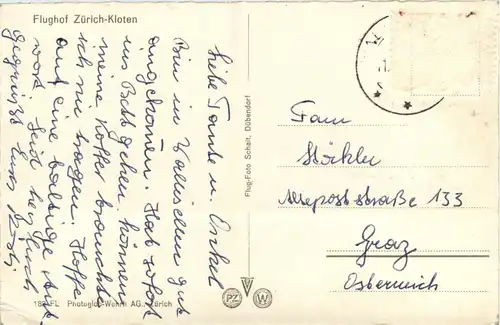 Flughof Zürich-Kloten
Liebe Tante u. Onkel
Bin in Wallisellen gut
angekommen. Hab sofort
ins Bett gehen können
meine Koffer brauchte
ich nie tragen. Hoffe
auf eine baldige Ant-
wort. Seid herzlich
gegrüßt
Flug-Foto Schalt, Dübendorf
Frau
Stöckler
Alte poststraße 133
Graz
Österreich
PZ
W
FL Photoglob-Wehrli AG., Zürich